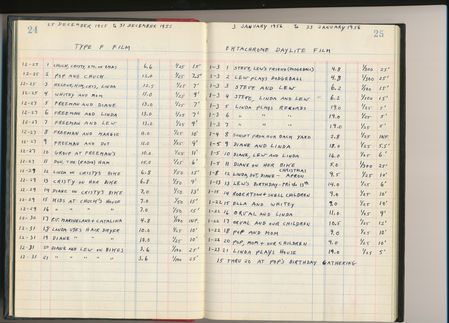 24
25 DECEMBER 1955 to 31 DECEMBER 1955
TYPE F FILM
12-25 1 CHUCK, 6.6 1/25 15'
12-25 2 POP AND CHUCK 13.0 1/25 7.5'
12-25 3 LINDA 12.5 1/25 7'
12-25 4 WHITEY AND MOM 11.0 1/25 9'
12-27 5 FREEMAN AND DIANE 13.0 1/25 7'
12-27 6 FREEMAN AND LINDA 13.0 1/25 7'
12-27 7 FREEMAN AND LEW 13.0 1/25 7'
12-27 8 FREEMAN AND MARGIE 11.0 1/25 10'
12-27 9 FREEMAN AND DOT 11.0 1/25 9'
12-27 10 GROUP AT FREEMAN'S 10.0 1/25 10'
12-27 11 DOC, TIM (RADIO) HAM 15.0 1/25 6'
12-29 12 LINDA ON CRISTY'S BIKE 6.8 1/50 15'
12-29 13 CRISTY ON HER BIKE 6.8 1/50
12-29 14 DIANE ON CRISTY'S BIKE 1/50 13'
12-29 15 KIDS AT CHUCK'S HOUSE 7.0 1/50 15'
12-29 16 " " " " 7.0 1/50 15'
12-31 17 P.V. MARINELAND & CATALINA 4.8 1/100 INF.
12-31 18 LINDA USES HAIR DRYER 10.0 1/25 10'
12-31 19 DIANE " " " 10.0 1/25 10'
12-31 20 DIANE AND LEW ON BIKES 3.6 1/100 25'
12-31 21 " " " " " 3.6 1/100 25'
1 JANUARY 1956 to 22 JANUARY 1956
25
EKTACHROME DAYLITE FILM
1-3 1 STEVE, LEW'S FRIEND (DODGEBALL) 4.8 1/100 25'
1-3 2 LEW PLAYS DODGEBALL 4.8 1/100 25'
1-3 3 STEVE AND LEW 6.2 1/100 15'
1-3 4 STEVE, LINDA AND LEW 6.2 1/100 15'
1-3 5 LINDA PLAYS RECORDS 19.0 1/25 5'
1-3 6 " " " 19.0 1/25 5'
1-3 7 " " " 19.0 1/25 5'
1-4 8 SUNSET FROM OUR BACK YARD 2.8 1/25 INF.
1-5 9 DIANE AND LINDA 18.0 1/25 5.5'
1-5 10 DIANE, LEW AND LINDA 16.0 1/25 6'
1-5 11 DIANE ON HER BIKE 1/100 25'
1-8 12 LINDA, DOT, DIANE - CHRISTMAS APRONS 9.5 1/25 10'
1-13 13 LEW'S BIRTHDAY - FRI. 14.0 1/25 6'
1-15 14 ROBERTSON & SHELL CHILDREN 9.0 1/25 10'
1-22 15 ELLA AND WHITEY 9.0 1/25 10'
1-22 16 ORVAL AND LINDA 11.0 1/25 9'
1-22 17 ORVAL AND OUR CHILDREN 10.5 1/25 12'
1-22 18 POP AND MOM 9.0 1/25 10'
1-22 20 POP, MOM & OUR CHILDREN 9.0 1/25 10'
1-22 21 LINDA PLAYS HOUSE 19.0 1/25 5'
15 THRU 20 AT POP'S BIRTHDAY GATHERING